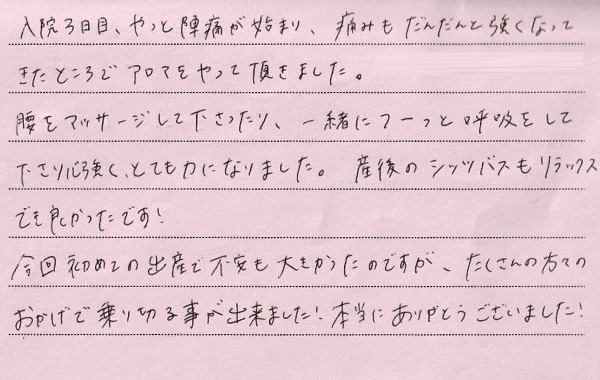 入院3日目、やっと陣痛が始まり、痛みもだんだんと強くなって
きたところでアロマをやって頂きました。
腰をマッサージして下さったり、一緒にフーっと呼吸をして
下さり心強く、とても力になりました。産後のシッツバスもリラックス
でき良かったです!
今回初めての出産で不安も大きかったのですが、たくさんの方々の
おかげで乗り切る事が出来ました!本当にありがとうございました!